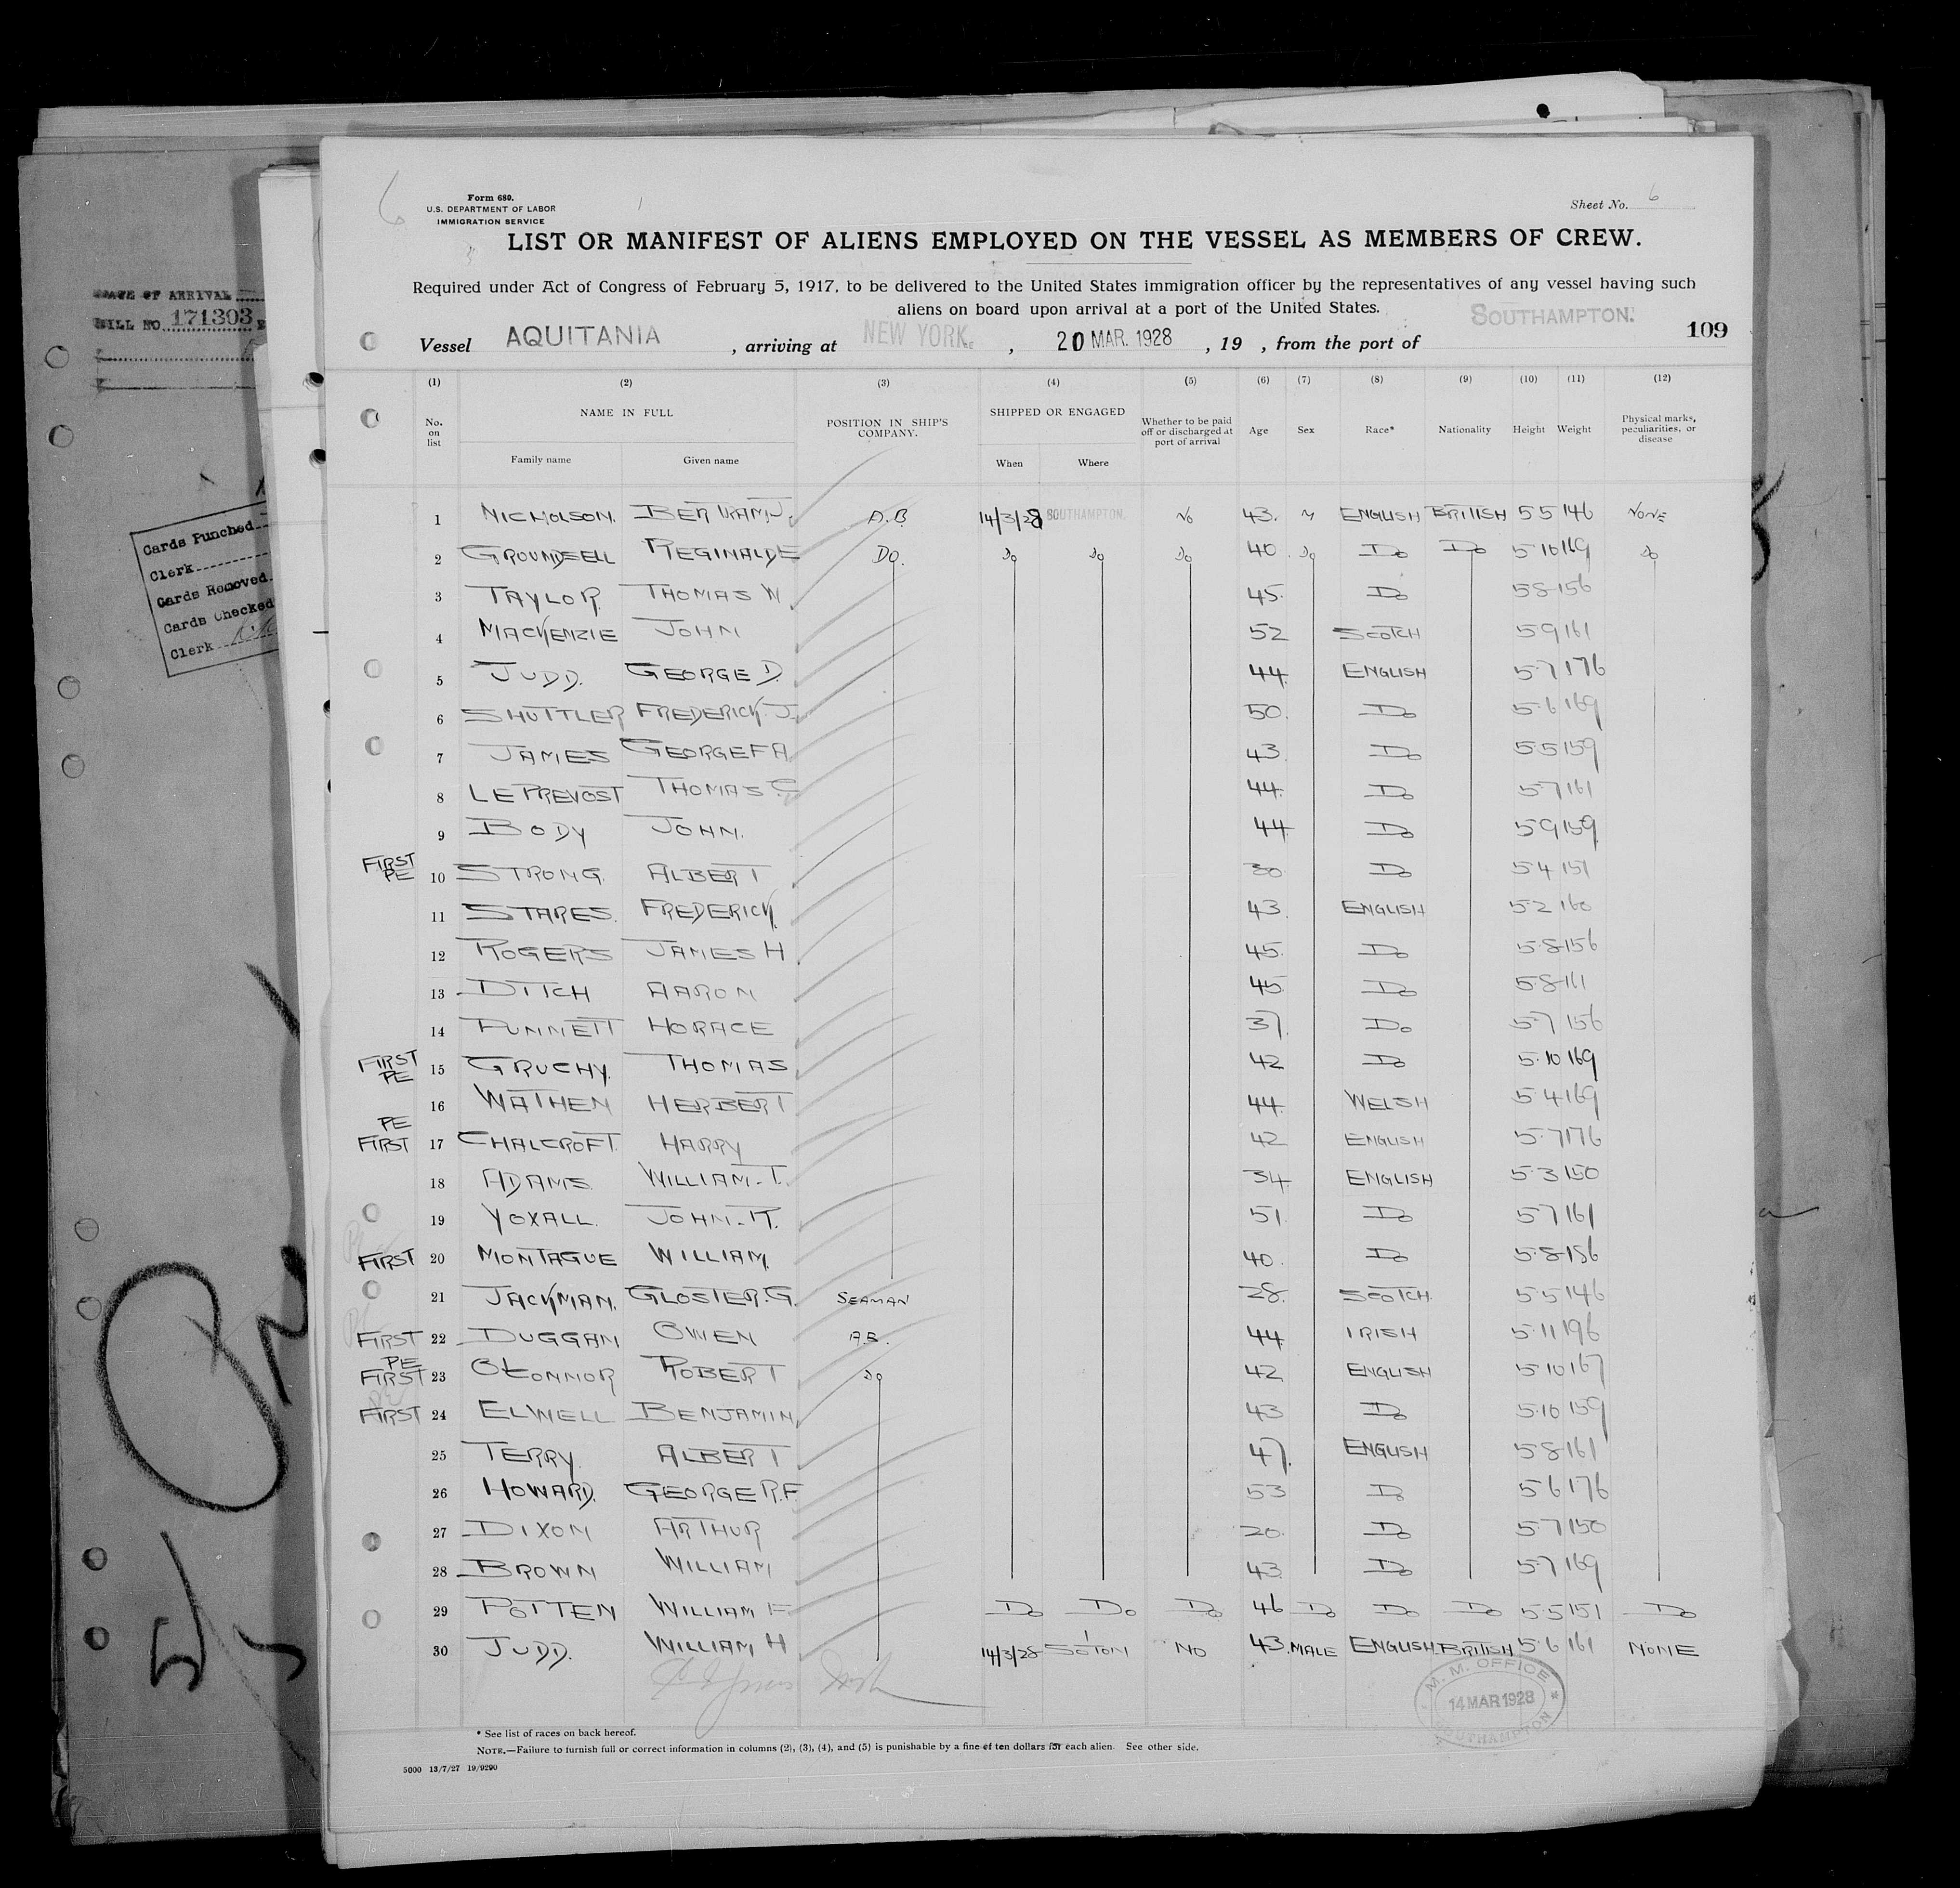 6
Form 680.
U.S. DEPARTMENT OF LABOR
IMMIGRATION SERVICE
Sheet No. 6
LIST OR MANIFEST OF ALIENS EMPLOYED ON THE VESSEL AS MEMBERS OF CREW.
Required under Act of Congress of February 5, 1917, to be delivered to the United States immigration officer by the representatives of any vessel having such
aliens on board upon arrival at a port of the United States.
Vessel AQUITANIA, arriving at NEW YORK, 20 MAR. 1928, 19 , from the port of SOUTHAMPTON. 109
(1) (2) (3) (4) (5) (6) (7) (8) (9) (10) (11) (12)
No. on list NAME IN FULL POSITION IN SHIP'S COMPANY. SHIPPED OR ENGAGED Whether to be paid off or discharged at port of arrival Age Sex Race* Nationality Height Weight Physical marks, peculiarities, or disease
Family name Given name When Where
1 NICHOLSON. BERTRAM J. A.B. 14/3/28 SOUTHAMPTON. No 43. M ENGLISH BRITISH 5 5 146 NONE
2 GROUNDSELL REGINALD E DO. Do Do Do 40. Do Do Do 5·10 169 Do
3 TAYLOR. THOMAS W 45. Do 5·8 156
4 MACKENZIE JOHN 52 SCOTCH 5·9 161
5 JUDD. GEORGE D. 44. ENGLISH 5·7 176
6 SHUTTLER FREDERICK. J. 50. Do 5·6 169
7 JAMES GEORGE F A. 43. Do 5·5 159
8 LE PREVOST THOMAS C 44. Do 5·7 161
9 BODY JOHN. 44 Do 5·9 159
FIRST PE 10 STRONG. ALBERT 30 Do 5·4 151
11 STARES. FREDERICK. 43. ENGLISH 5·2 160
12 ROGERS JAMES H. 45. Do 5·8 156
13 DITCH AARON 45. Do 5·8 161
14 PUNNETT HORACE 37. Do 5·7 156
FIRST PE 15 GRUCHY. THOMAS 42 Do 5·10 169
16 WATHEN HERBERT 44. WELSH 5·4 169
PE FIRST 17 CHALCROFT. HARRY 42 ENGLISH 5·7 176
18 ADAMS. WILLIAM. T. 34 ENGLISH 5·3 150
19 YOXALL. JOHN. R. 51. Do 5·7 161
FIRST 20 MONTAGUE WILLIAM. 40. Do 5·8 156
21 JACKMAN. GLOSTER. G. SEAMAN 28. SCOTCH. 5·5 146
FIRST 22 DUGGAN OWEN A.B. 44 IRISH 5·11 196
PE FIRST 23 O'CONNOR ROBERT Do 42 ENGLISH 5·10 167
FIRST 24 ELWELL BENJAMIN. 43 Do 5·10 159
25 TERRY. ALBERT 47. ENGLISH 5·8 161
26 HOWARD. GEORGE R.F. 53 Do 5·6 176
27 DIXON ARTHUR 20. Do 5·7 150
28 BROWN WILLIAM 43. Do 5·7 169
29 POTTEN WILLIAM F. Do Do Do 46 Do Do Do 5·5 151 Do
30 JUDD. WILLIAM H 14/3/28 SOTON NO 43. MALE ENGLISH. BRITISH 5·6 161 NONE
M. M. OFFICE
14 MAR 1928
SOUTHAMPTON
* See list of races on back hereof.
NOTE.—Failure to furnish full or correct information in columns (2), (3), (4), and (5) is punishable by a fine of ten dollars for each alien. See other side.
5000 13/7/27 19/9290
DATE OF ARRIVAL
BILL NO. 171303
Cards Punched
Clerk
Cards Removed
Cards Checked
Clerk